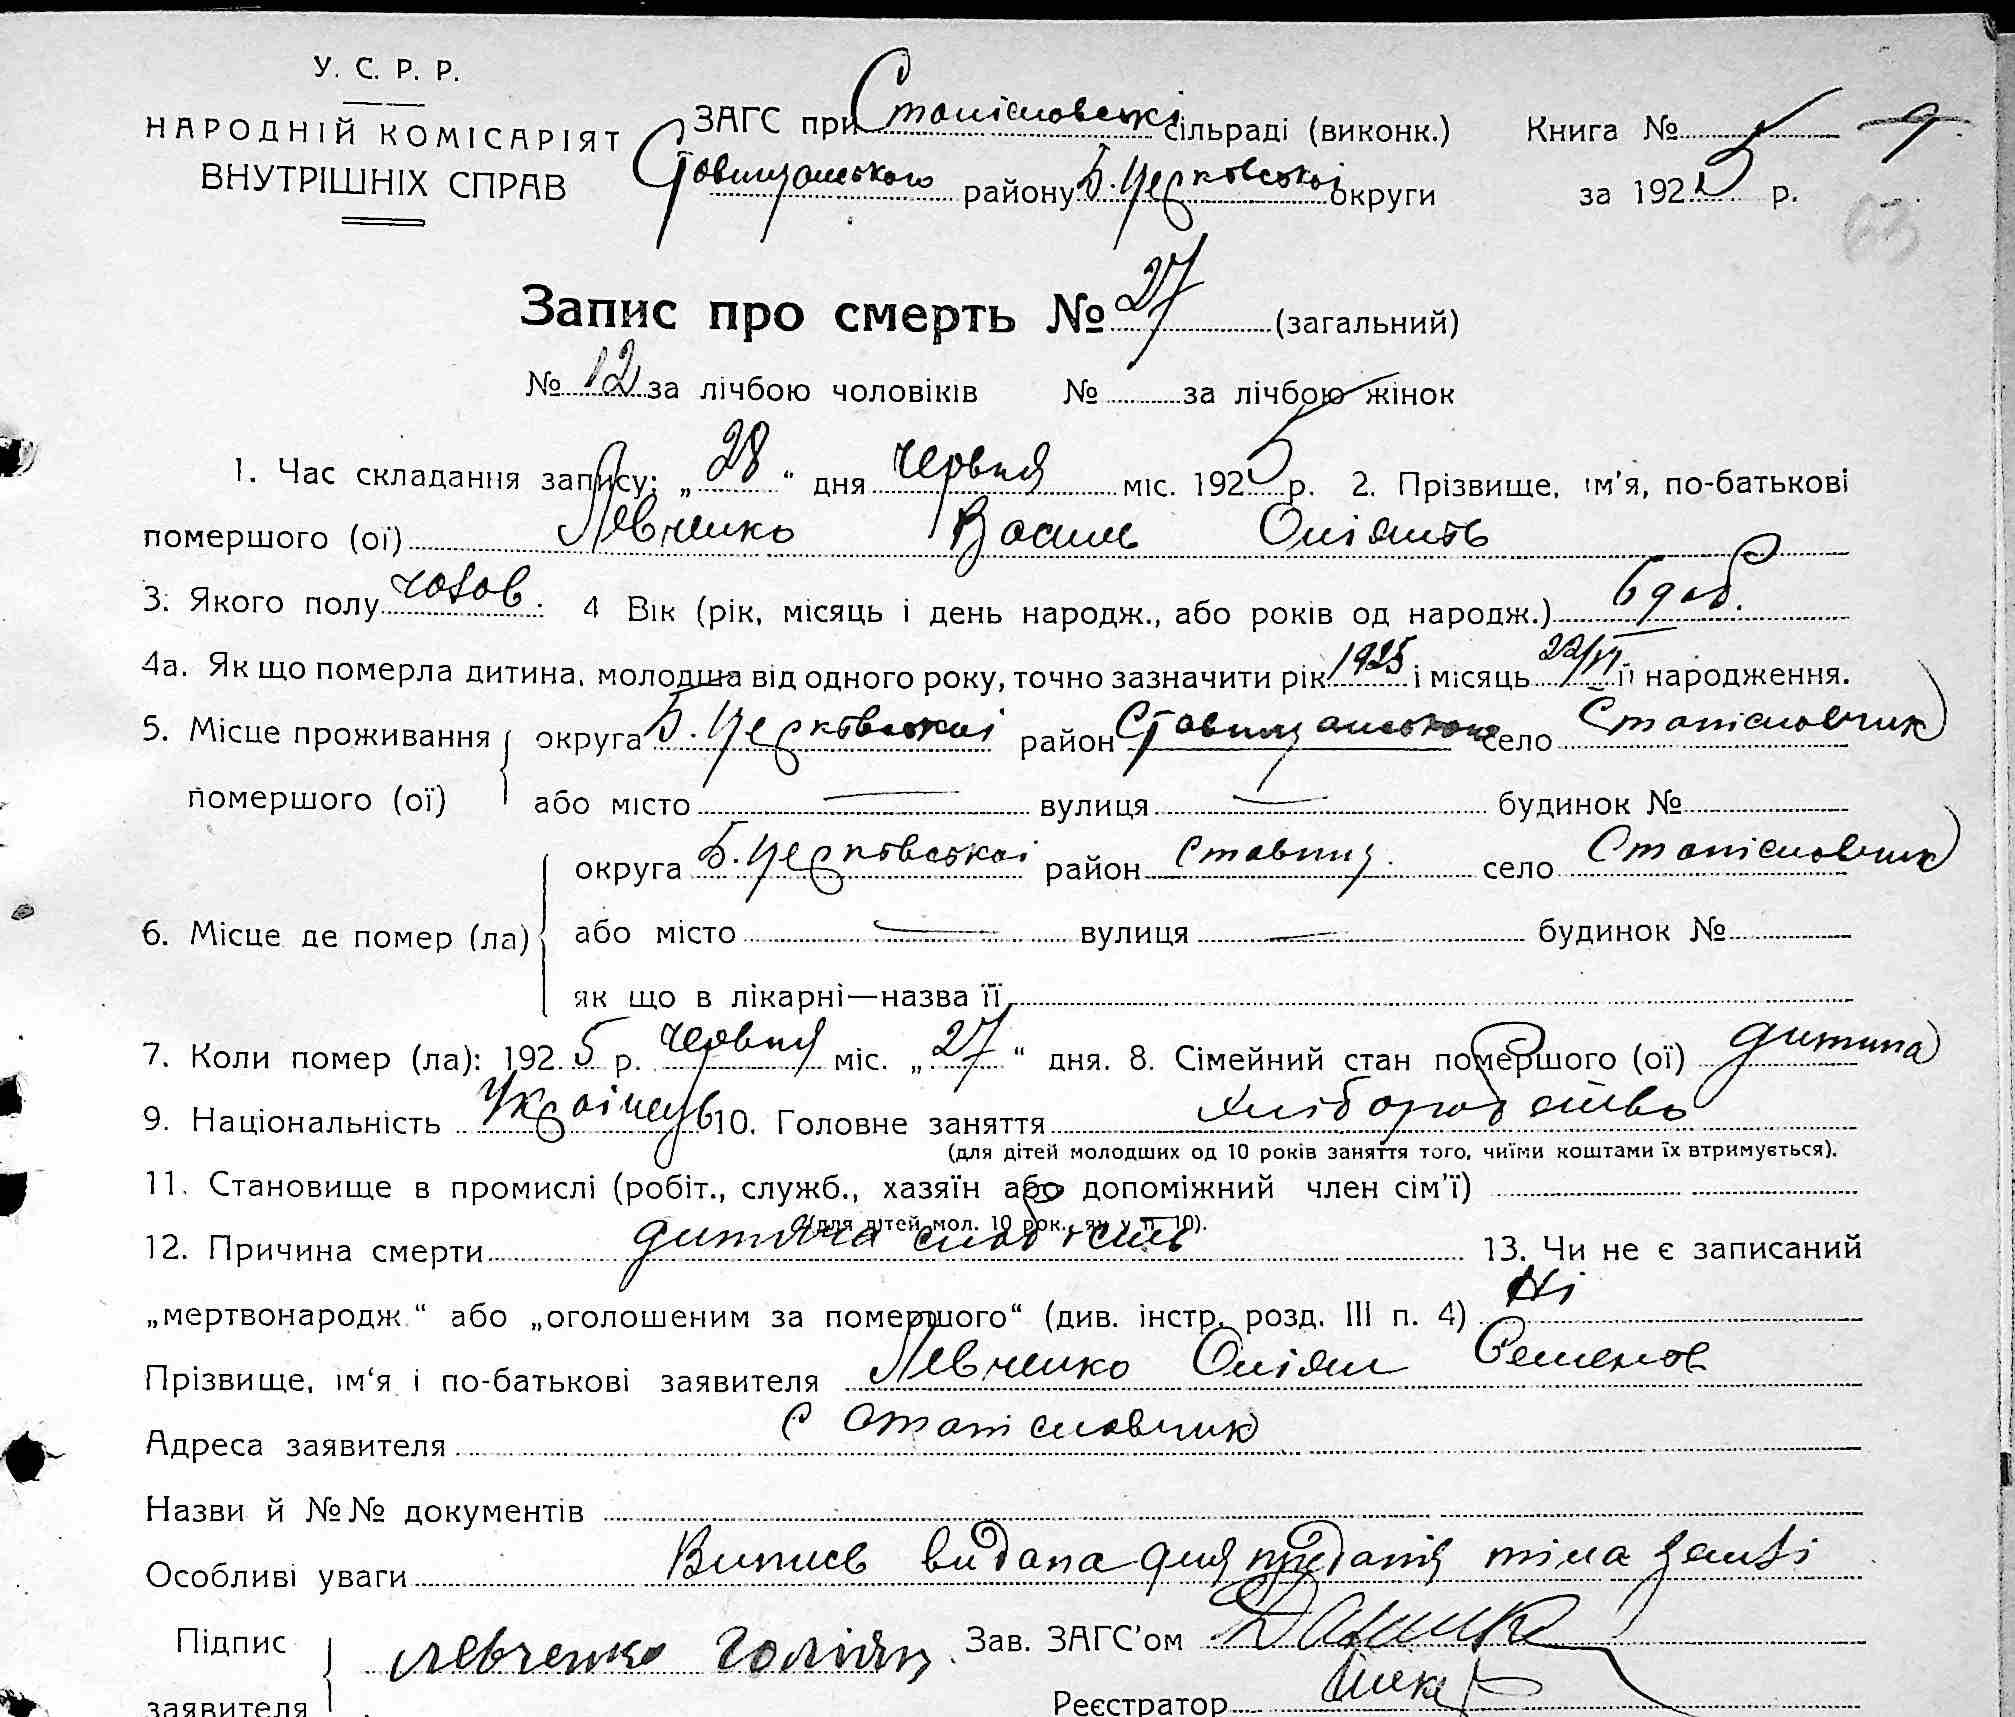 У. С. Р. Р.
НАРОДНІЙ КОМІСАРІЯТ
ВНУТРІШНІХ СПРАВ
ЗАГС при Станіславські сільраді (виконк.)
Ставищанського району Б. Церковської округи
Книга № 9
за 1925 р.
63
Запис про смерть № 27 (загальний)
№ 12 за лічбою чоловіків № за лічбою жінок
1. Час складання запису: „28“ дня червня міс. 1925 р. 2. Прізвище, ім'я, по-батькові
помершого (ої) Левченко Василь Оліянов
3. Якого полу чолов. 4 Вік (рік, місяць і день народж., або років од народж.) 6 доб.
4а. Як що померла дитина, молодша від одного року, точно зазначити рік 1925 і місяць 22/VI її народження.
5. Місце проживання помершого (ої) округа Б. Церковської район Ставищанського село Станіславчик
або місто — вулиця — будинок №
6. Місце де помер (ла) округа Б. Церковської район Ставищ. село Станіславчик
або місто — вулиця — будинок №
як що в лікарні—назва її
7. Коли помер (ла): 1925 р. червня міс. „27“ дня. 8. Сімейний стан помершого (ої) дитина
9. Національність Українець 10. Головне заняття хліборобство
(для дітей молодших од 10 років заняття того, чиїми коштами їх втримується).
11. Становище в промислі (робіт., служб., хазяїн або допоміжний член сім'ї)
(для дітей мол. 10 рок., як у п. 10).
12. Причина смерти дитяча слабость 13. Чи не є записаний
„мертвонародж.“ або „оголошеним за помершого“ (див. інстр. розд. III п. 4) Ні
Прізвище, ім'я і по-батькові заявителя Левченко Оліян Семенов
Адреса заявителя с Станіславчик
Назви й №№ документів
Особливі уваги Випись видана для придання тіла землі
Підпис заявителя Левченко
Зав. ЗАГС'ом
Реєстратор